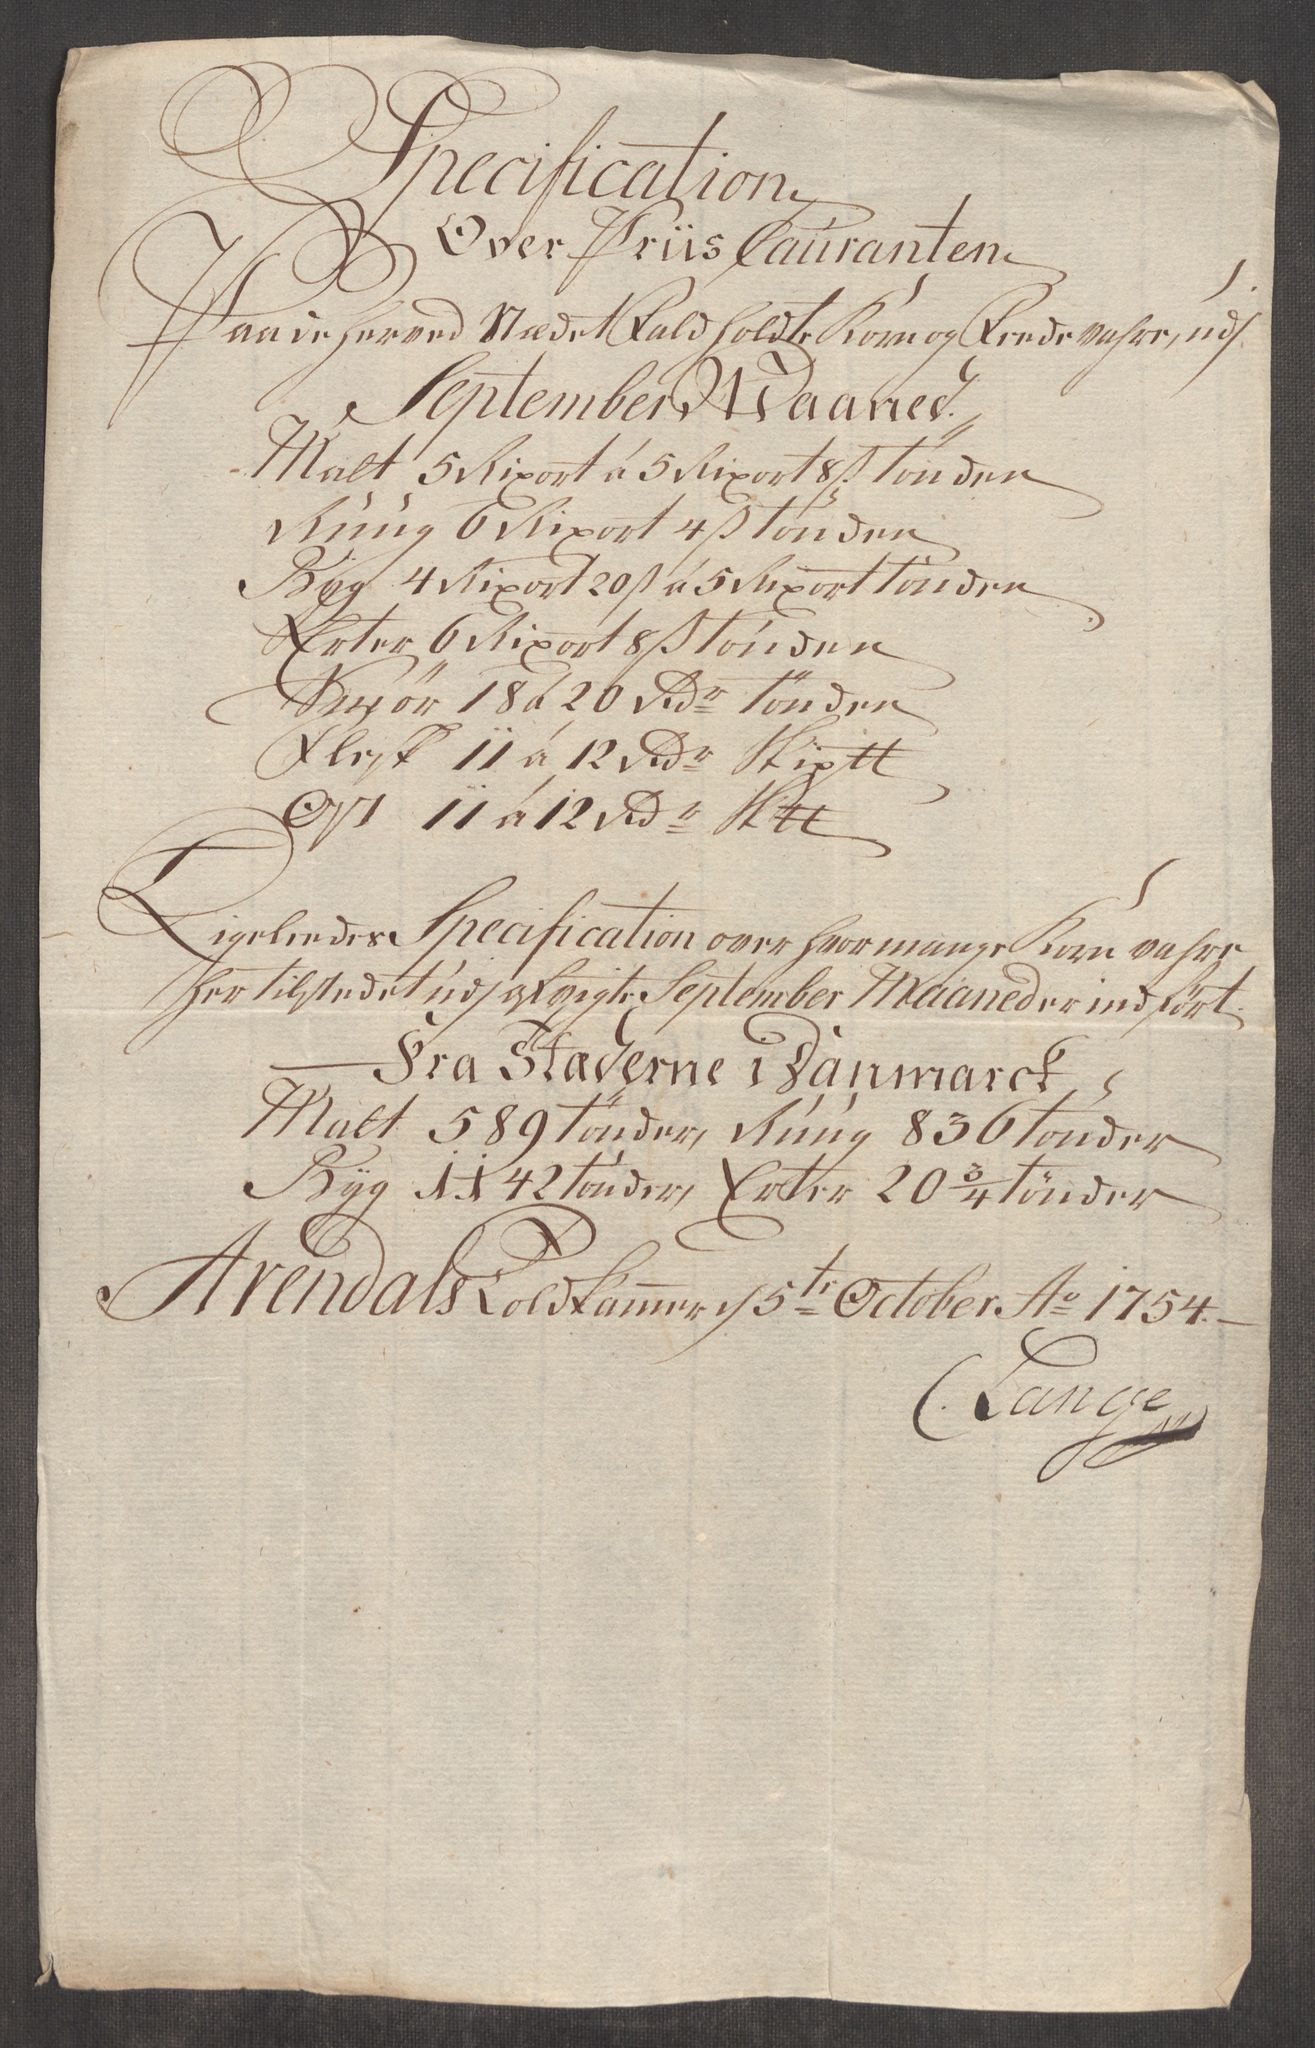 Specification
Over Priis Cauranten
Paa de her ved Stædet Fald holdte Korn og Feede vahre, udj
September Maaned.
Malt 5 Rixort á 5 Rixort 8 ß tønden
Rúúg 6 Rixort 4 ß tønden
Byg 4 Rixort 20 ß á 5 Rixort tønden
Erter 6 Rixort 8 ß tønden
Smør 18 á 20 Rdr tønden
Flesk 11 á 12 Rdr Skip℔
Ost 11 á 12 Rdr Sk℔
Ligeleedes Specification over hvor mange Korn vahre
her til stedet udj afvigte September Maaned er indført
Fra Stæderne i Danmarck
Malt 589 tønder, Rúúg 836 tønder
Byg 1142 tønder, Erter 20 3/4 tønder
Arendals Toldkammer d 5te October Ao 1754.
C. Lange